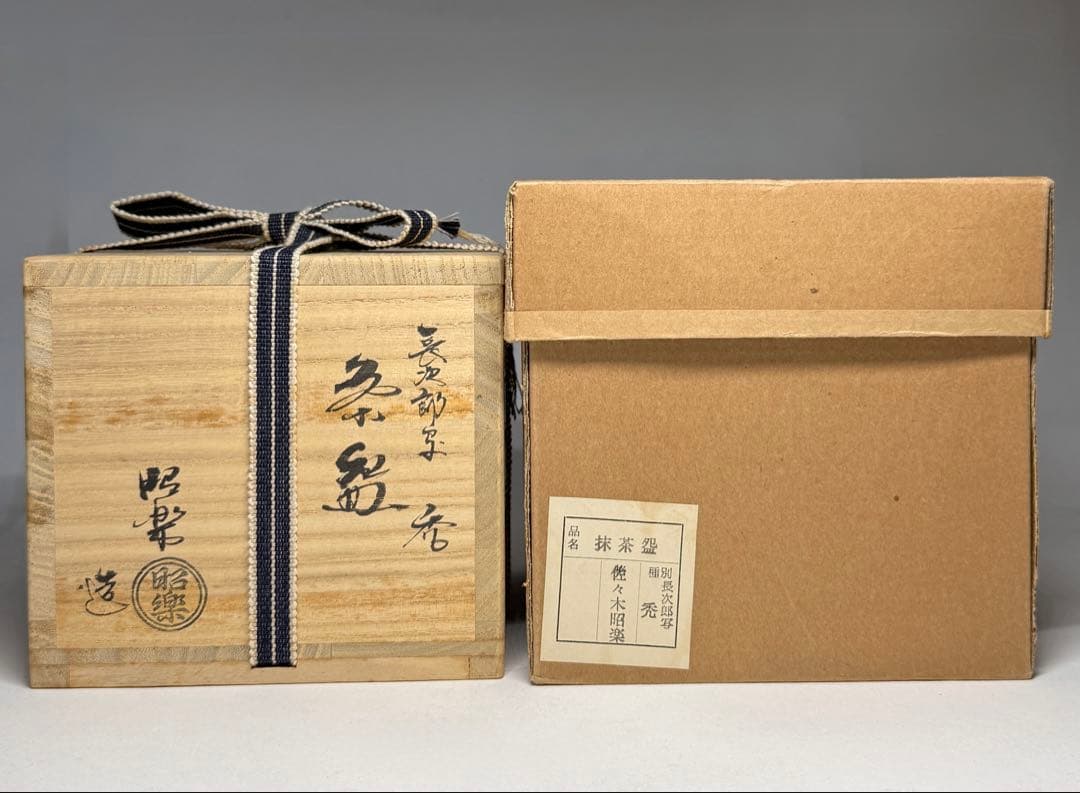 長次郎写
茶盌
禿
昭楽
造
昭樂
品名
抹茶盌
種別
長次郎写
禿
佐々木昭楽